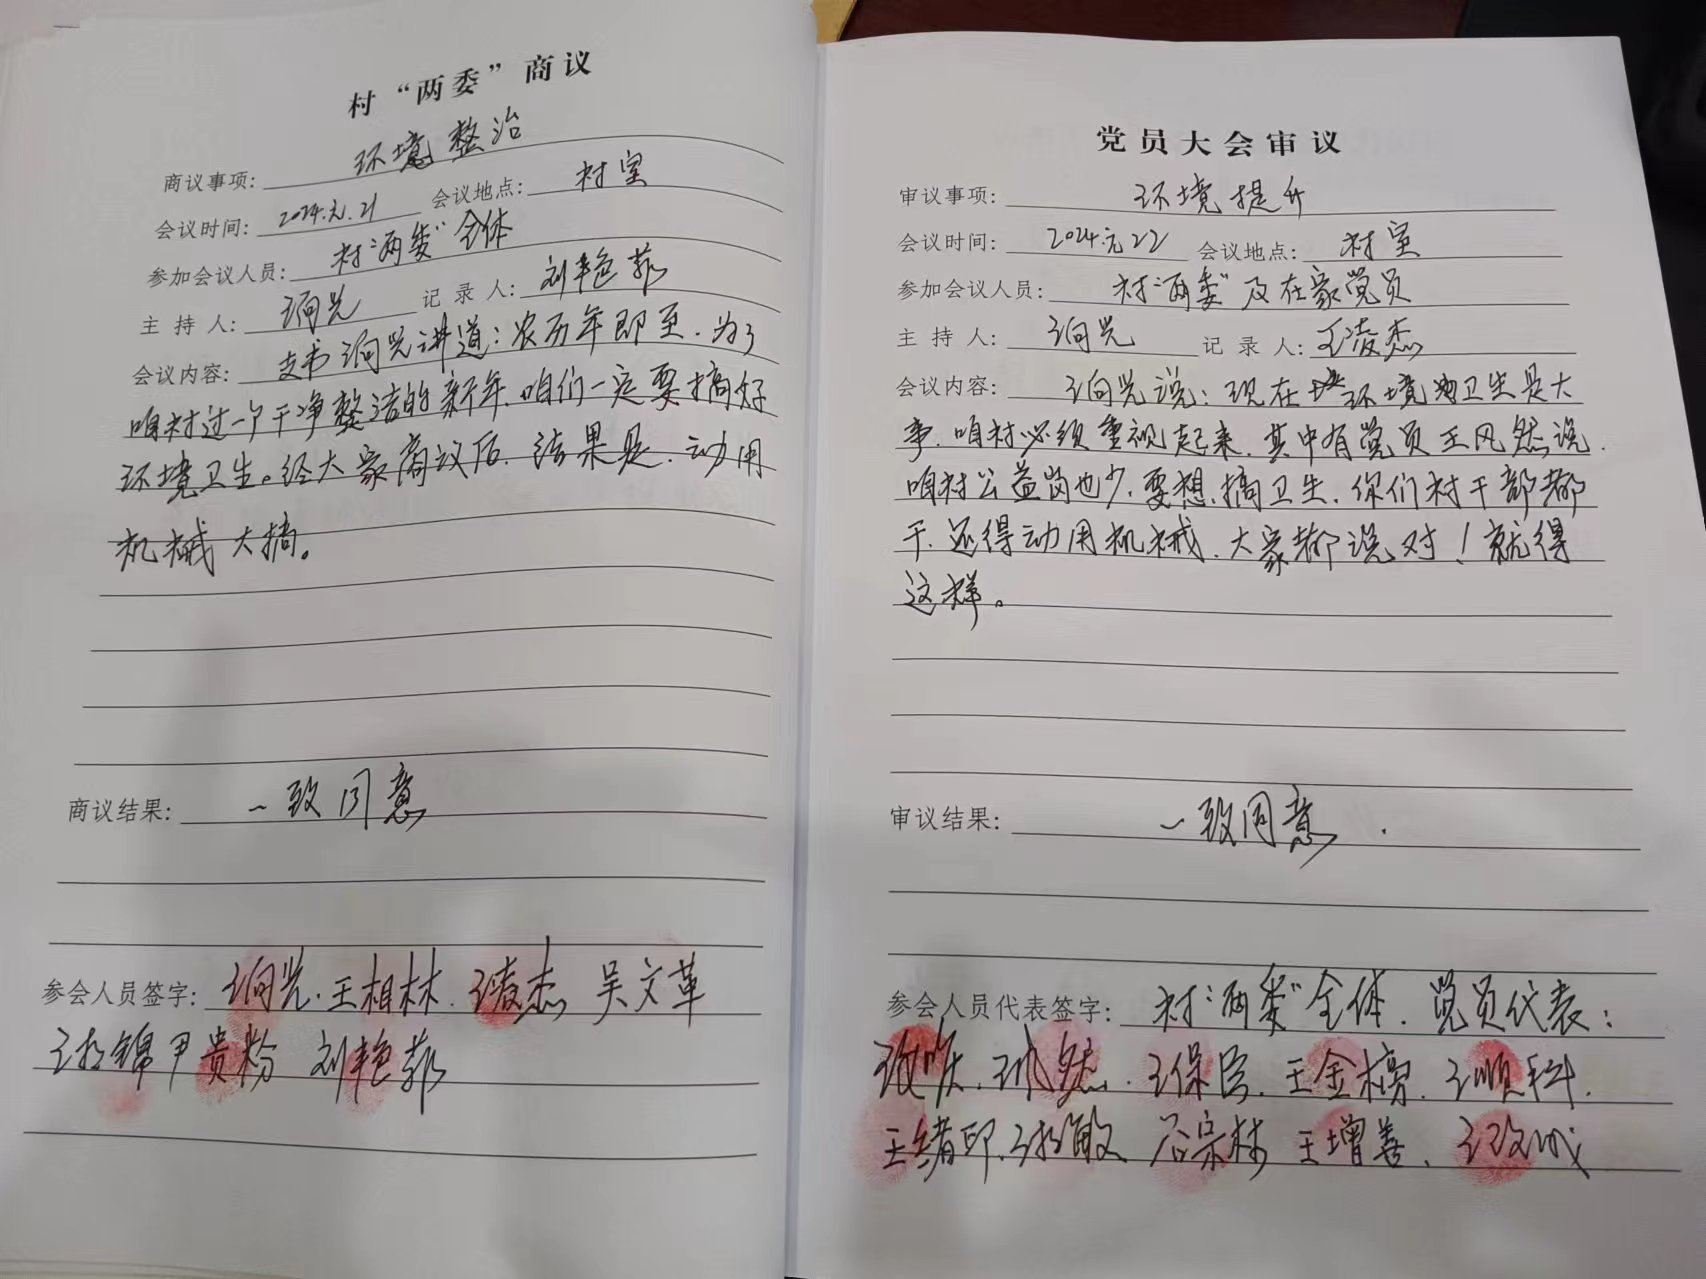 村“两委”商议
商议事项: 环境整治
会议时间: 2024.元.21 会议地点: 村室
参加会议人员: 村“两委”全体
主持人: 王向党 记录人: 刘艳菊
会议内容: 支书王向党讲道:农历年即至.为了
咱村过一个干净整洁的新年、咱们一定要搞好
环境卫生。经大家商议后.结果是.动用
机械大搞。
商议结果: 一致同意
参会人员签字: 王向党.王相林.王凌杰 吴文革
尹贵粉 刘艳菊
党员大会审议
审议事项: 环境提升
会议时间: 2024.元22 会议地点: 村室
参加会议人员: 村“两委”及在家党员
主持人: 王向党 记录人: 王凌杰
会议内容: 王向党说:现在环境卫生是大
事.咱村必须重视起来.其中有党员王风然说.
咱村公益岗也少.要想.搞卫生.你们村干部都
干.还得动用机械.大家都说对!就得
这样。
审议结果: 一致同意.
参会人员代表签字: 村“两委”全体.党员代表:
王保臣.王金榜.王顺科.
王绪印. 王增善.